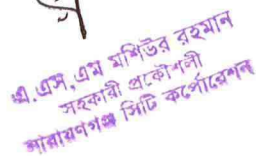 এ.এস.এম মশিউর রহমান
সহকারী প্রকৌশলী
নারায়ণগঞ্জ সিটি কর্পোরেশন